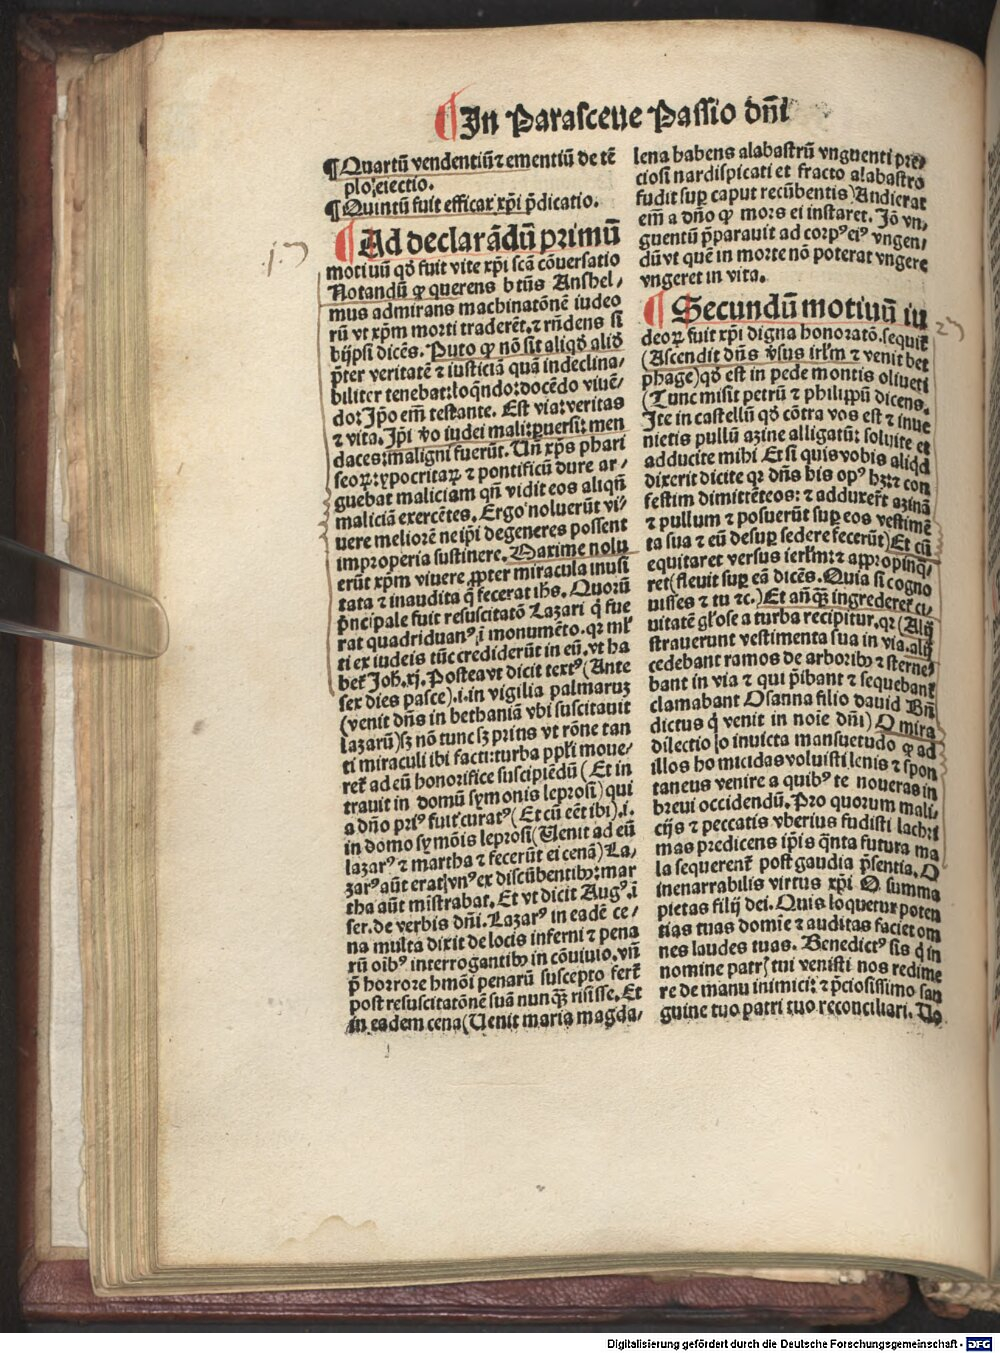 ¶In Parasceue Passio dn̄i
¶Quartū vendentiū ⁊ ementiū de tē
plo: eiectio.
¶Quintū fuit efficax xp̄i p̄dicatio.
¶Ad declarādū primū
motiuū qd̓ fuit vite xp̄i scā cōuersatio
Notandū ꝙ querens btūs Anshel-
mus admirans machinatōnē iudeo
rū vt xp̄m morti traderēt. ⁊ rn̄dens sī
bijpsi dicēs. Puto ꝙ nō sit aliqd̓ aliō
p̄ter veritatē ⁊ iusticiā quā indeclina-
biliter tenebat: loq̄ndo: docēdo viuē-
do: Jp̄o em̄ testante. Est via: veritas
⁊ vita. Jp̄i v̓o iudei mali: ꝑuersi: men
daces: maligni fuerūt. Vn̄ xp̄s phari
seoꝝ: ypocritaꝝ ⁊ pontificū dure ar-
guebat maliciam qn̄ vidit eos aliqn̄
maliciā exercētes. Ergo noluerūt vi-
uere meliorē ne ip̄i degeneres possent
improperia sustinere. Maxime nolu
erūt xp̄m viuere ꝓpter miracula inusi
tata ⁊ inaudita q̄ fecerat ihs. Quorū
p̄ncipale fuit resuscitatō Lazari q̇ fue
rat quadriduanꝰ. ī monumēto. qꝛ ml̓
ti ex iudeis tūc crediderūt in eū. vt ha
bet̄ Joh. xj. Postea vt dicit textꝰ (Ante
sex dies pasce) .i. in vigilia palmaruꝫ
(venit dn̄s in bethaniā vbi suscitauit
lazarū) sꝫ nō tunc sꝫ prius vt rōne tan
ti miraculi ibi facti: turba pp̄li moue-
ret̄ ad eū honorifice suscipiēdū (Et in
trauit in domū symonis leprosi) qui
a dn̄o priꝰ fuit curatꝰ (Et cū eēt ibi) .i.
in domo symōis leprosi (Uenit ad eū
lazarꝰ ⁊ martha ⁊ fecerūt ei cenā) La-
zarꝰ aūt erat vnꝰ ex discūbentibꝰ: mar
tha aūt mīstrabat. Et vt dicit Augꝰ. ī
ser. de verbis dn̄i. Lazarꝰ in eadē ce-
na multa dixit de locis inferni ⁊ pena
rū oībꝰ interrogantibꝰ in cōuiuio. vn̄
p̄ horrore hm̄oi penarū suscepto fert̄
post resuscitatōnē suā nunqꝫ risisse. Et
in eadem cena (Uenit maria magda-
lena habens alabastrū vnguenti pre-
ciosi nardispicati et fracto alabastro
fudit suꝑ caput recūbentis) Audierat
em̄ a dn̄o ꝙ mors ei instaret. Jō vn-
guentū p̄parauit ad corpꝰ eiꝰ vngen-
dū vt quē in morte nō poterat vngere
vngeret in vita.
¶Secundū motiuū iu
deoꝝ fuit xp̄i digna honoratō. sequit̄
(Ascendit dn̄s v̓sus irl̓m ⁊ venit bet
phage) qd̓ est in pede montis oliueti
(Tunc misit petrū ⁊ philippū dicens.
Jte in castellū qd̓ cōtra vos est ⁊ inue
nietis pullū azine alligatū: soluite et
adducite mihi Et si quis vobis aliqd̓
dixerit dicite qꝛ dn̄s his opꝰ hꝫ: ⁊ con
festim dimittēt eos: ⁊ adduxer̄t azinā
⁊ pullum ⁊ posuerūt suꝑ eos vestimē
ta sua ⁊ eū desuꝑ sedere fecerūt) Et cū
equitaret versus ierl̓m: ⁊ appropinq̄-
ret (fleuit suꝑ eā dicēs. Quia si cogno
uisses ⁊ tu ⁊c.) Et anq̄ꝫ ingrederet̄ ci-
uitatē gl̓ose a turba recipitur. qꝛ (Alij
strauerunt vestimenta sua in via. alij
cedebant ramos de arboribꝰ ⁊ sterne-
bant in via ⁊ qui p̄ibant ⁊ sequebant̄
clamabant Osanna filio dauid Bn̄
dictus q̇ venit in noīe dn̄i) O mira
dilectio o inuicta mansuetudo ꝙ ad
illos homicidas voluisti lenis ⁊ spon
taneus venire a quibꝰ te noueras in
breui occidendū. Pro quorum mali-
cijs ⁊ peccatis vberius fudisti lachri
mas predicens ip̄is q̄nta futura ma
la sequerent̄ post gaudia p̄sentia. O
inenarrabilis virtus xp̄i O summa
pietas filij dei. Quis loquetur poten
tias tuas domīe ⁊ auditas faciet om
nes laudes tuas. Benedictꝰ sis q̇ in
nomine patrꝭ tui venisti nos redime
re de manu inimici: ⁊ p̄ciosissimo san
guine tuo patri tuo reconciliari. Uo
Digitalisierung gefördert durch die Deutsche Forschungsgemeinschaft - DFG